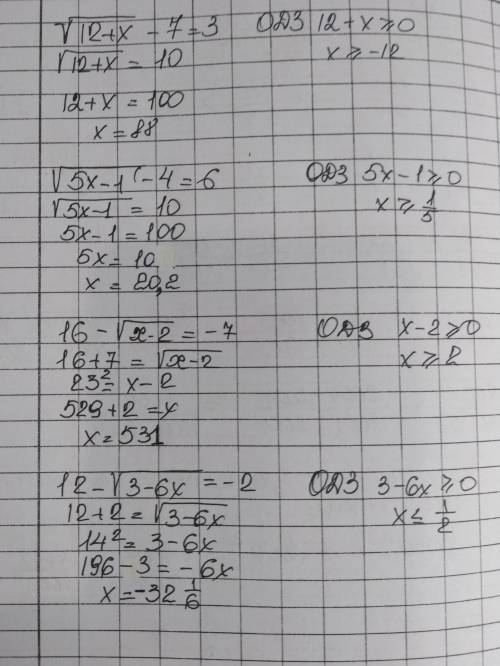 √12+x - 7 = 3 ОДЗ 12+x ≥ 0
√12+x = 10 x ≥ -12
12+x = 100
x = 88
√5x-1 - 4 = 6 ОДЗ 5x-1 ≥ 0
√5x-1 = 10 x ≥ 1/5
5x-1 = 100
5x = 10
x = 20,2
16 - √x-2 = -7 ОДЗ x-2 ≥ 0
16+7 = √x-2 x ≥ 2
23² = x-2
529+2 = x
x = 531
12 - √3-6x = -2 ОДЗ 3-6x ≥ 0
12+2 = √3-6x x ≤ 1/2
14² = 3-6x
196-3 = -6x
x = -32 1/6